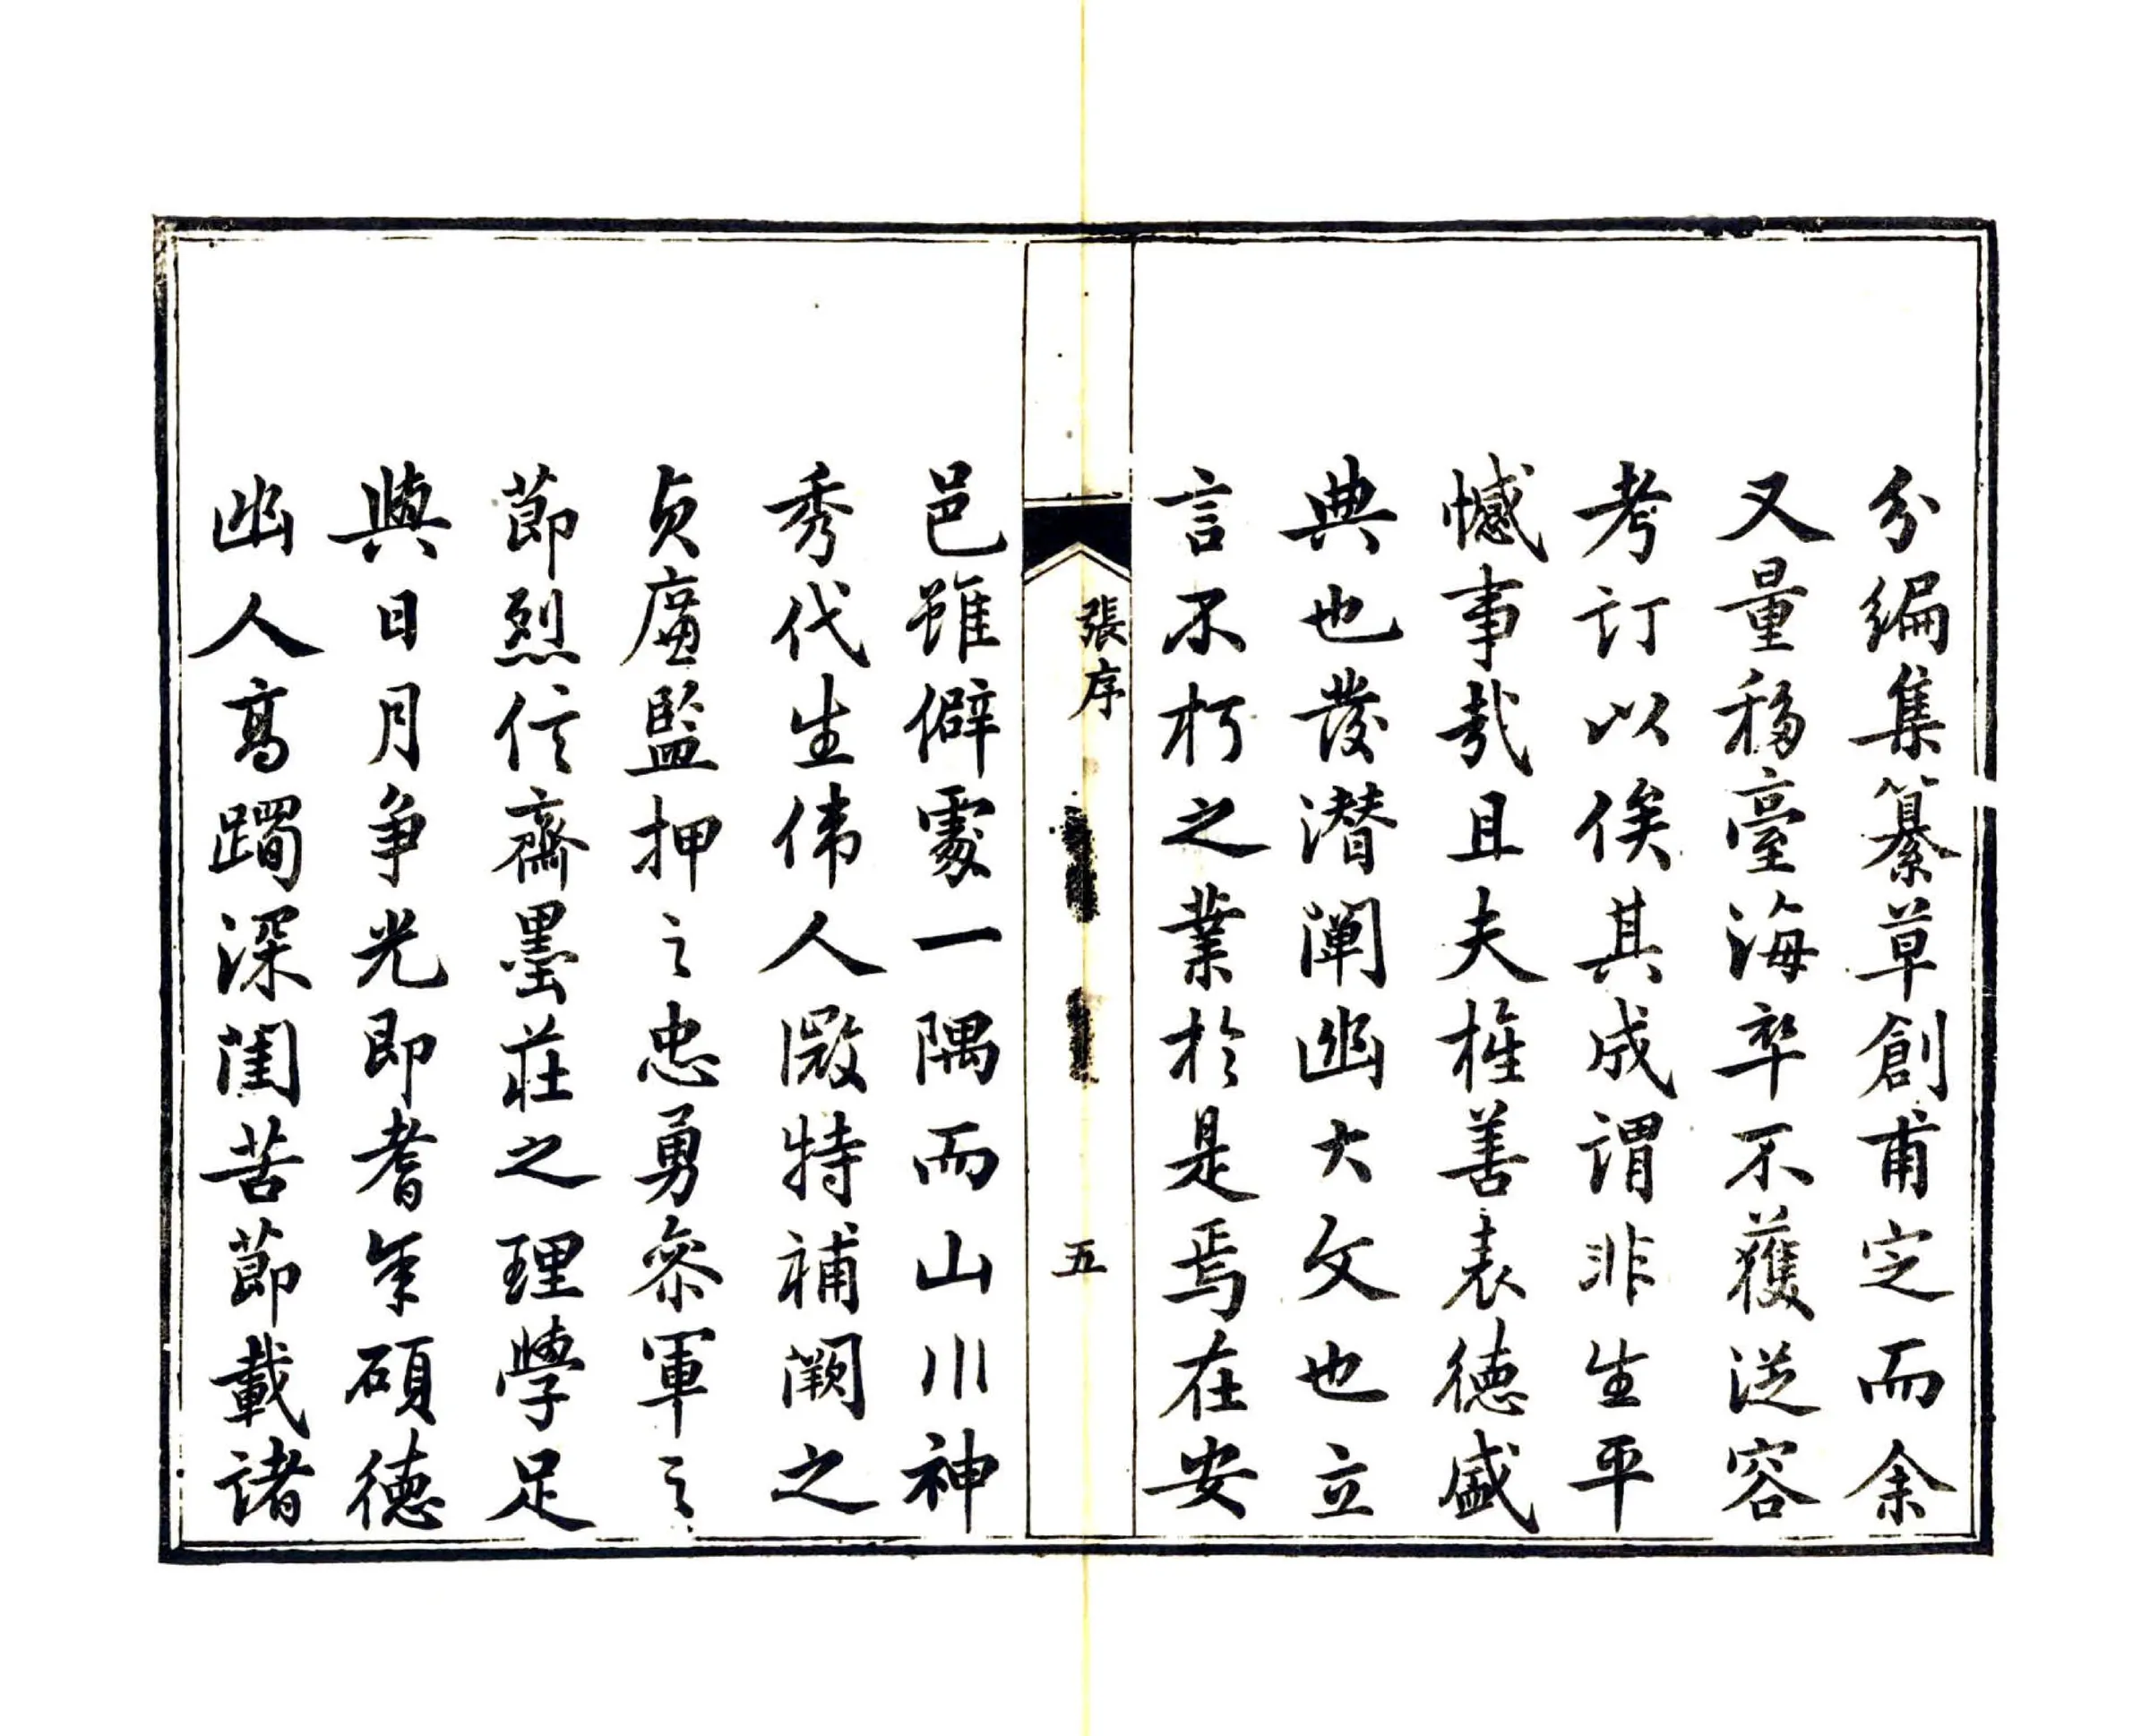 分編集纂草創甫定而余
又量移臺海卒不獲從容
考訂以俟其成謂非生平
憾事哉且夫旌善表德盛
典也發潛闡幽大文也立
言不朽之業於是焉在安
張序
五
邑雖僻處一隅而山川神
秀代生偉人微特補闕之
貞廉監押之忠勇參軍之
節烈信齋墨莊之理學足
與日月爭光即耆年碩德
幽人高躅深閨苦節載諸